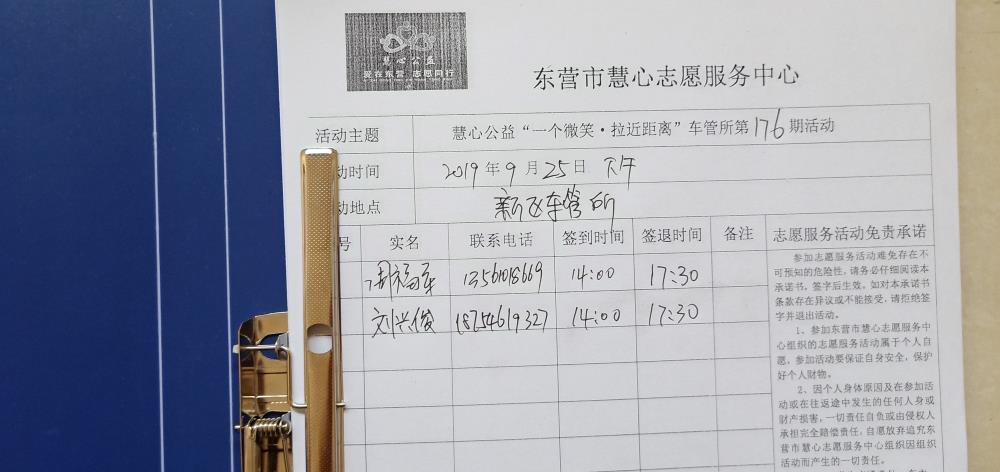 慧心公益
爱在东营 志愿同行
东营市慧心志愿服务中心
活动主题 慧心公益“一个微笑·拉近距离”车管所第176期活动
动时间 2019年9月25日 下午
动地点 新区车管所
号 实名 联系电话 签到时间 签退时间 备注 志愿服务活动免责承诺
周福军 13561018669 14:00 17:30
刘兴俊 18754619327 14:00 17:30
参加志愿服务活动难免存在不
可预知的危险性，请务必仔细阅读本
承诺书，签字后生效。如对本承诺书
条款存在异议或不能接受，请拒绝签
字并退出活动。
1、参加东营市慧心志愿服务中
心组织的志愿服务活动属于个人自
愿，参加活动要保证自身安全，保护
好个人财物。
2、因个人身体原因及在参加活
动或在往返途中发生的任何人身或
财产损害，一切责任自负或由侵权人
承担完全赔偿责任，自愿放弃追究东
营市慧心志愿服务中心组织因组织
活动而产生的一切责任。